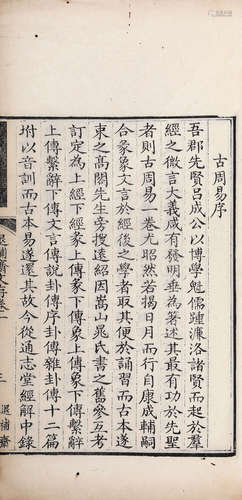 古周易序
吾郡先賢呂成公以博學魁儒踵濂洛諸賢而起於羣
經之微言大義咸有發明垂為篹述其最有功於先聖
者則古周易一卷尤昭然若揭日月而行自康成輔嗣
合彖象文言於經後之學者取其便於誦習而古本遂
束之高閣先生旁搜遠紹因嵩山晁氏書之舊參互考
訂定為上經下經彖上傳彖下傳象上傳象下傳繫辭
上傳繫辭下傳文言傳說卦傳序卦傳雜卦傳十二篇
坿以音訓而古本易遂還其故今從通志堂經解中錄
退補齋